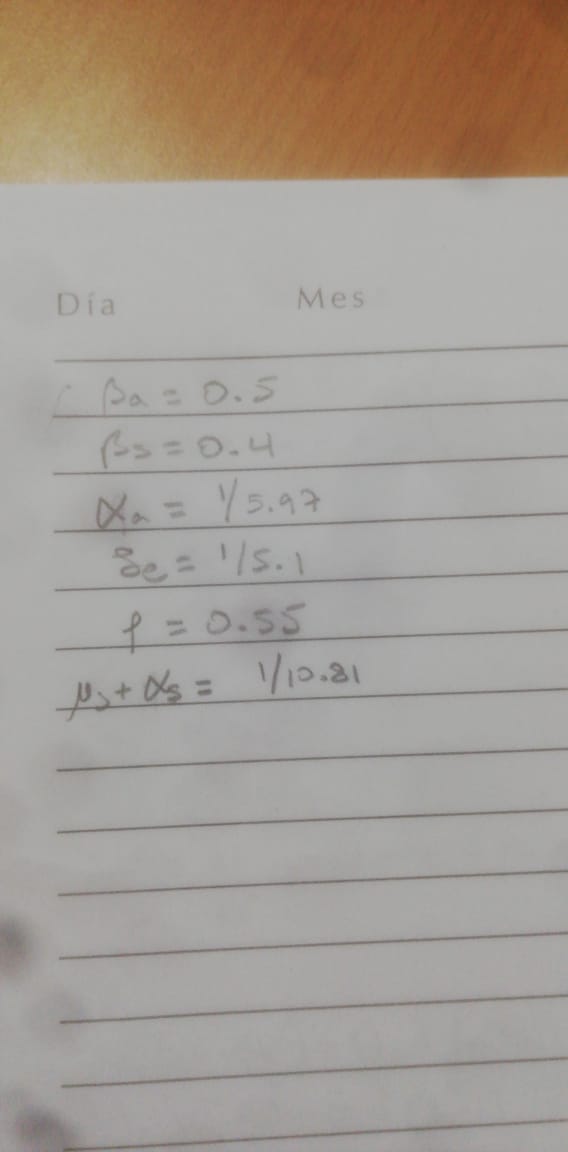 Día Mes
βa = 0.5
βs = 0.4
αa = 1/5.97
δe = 1/5.1
ρ = 0.55
μs + αs = 1/10.81